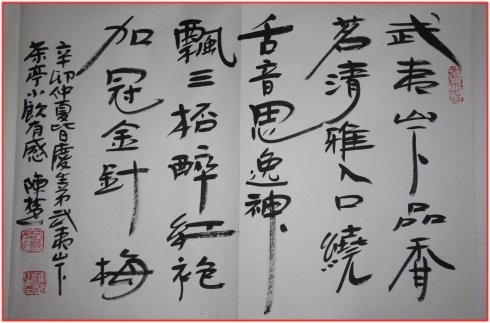 武夷山下品香
茗清雅入口繞
舌音思逸神
飄三桮醉紅袍
加冠金針梅
辛卯仲夏慶武夷山下
茶亭小飲有感 陳